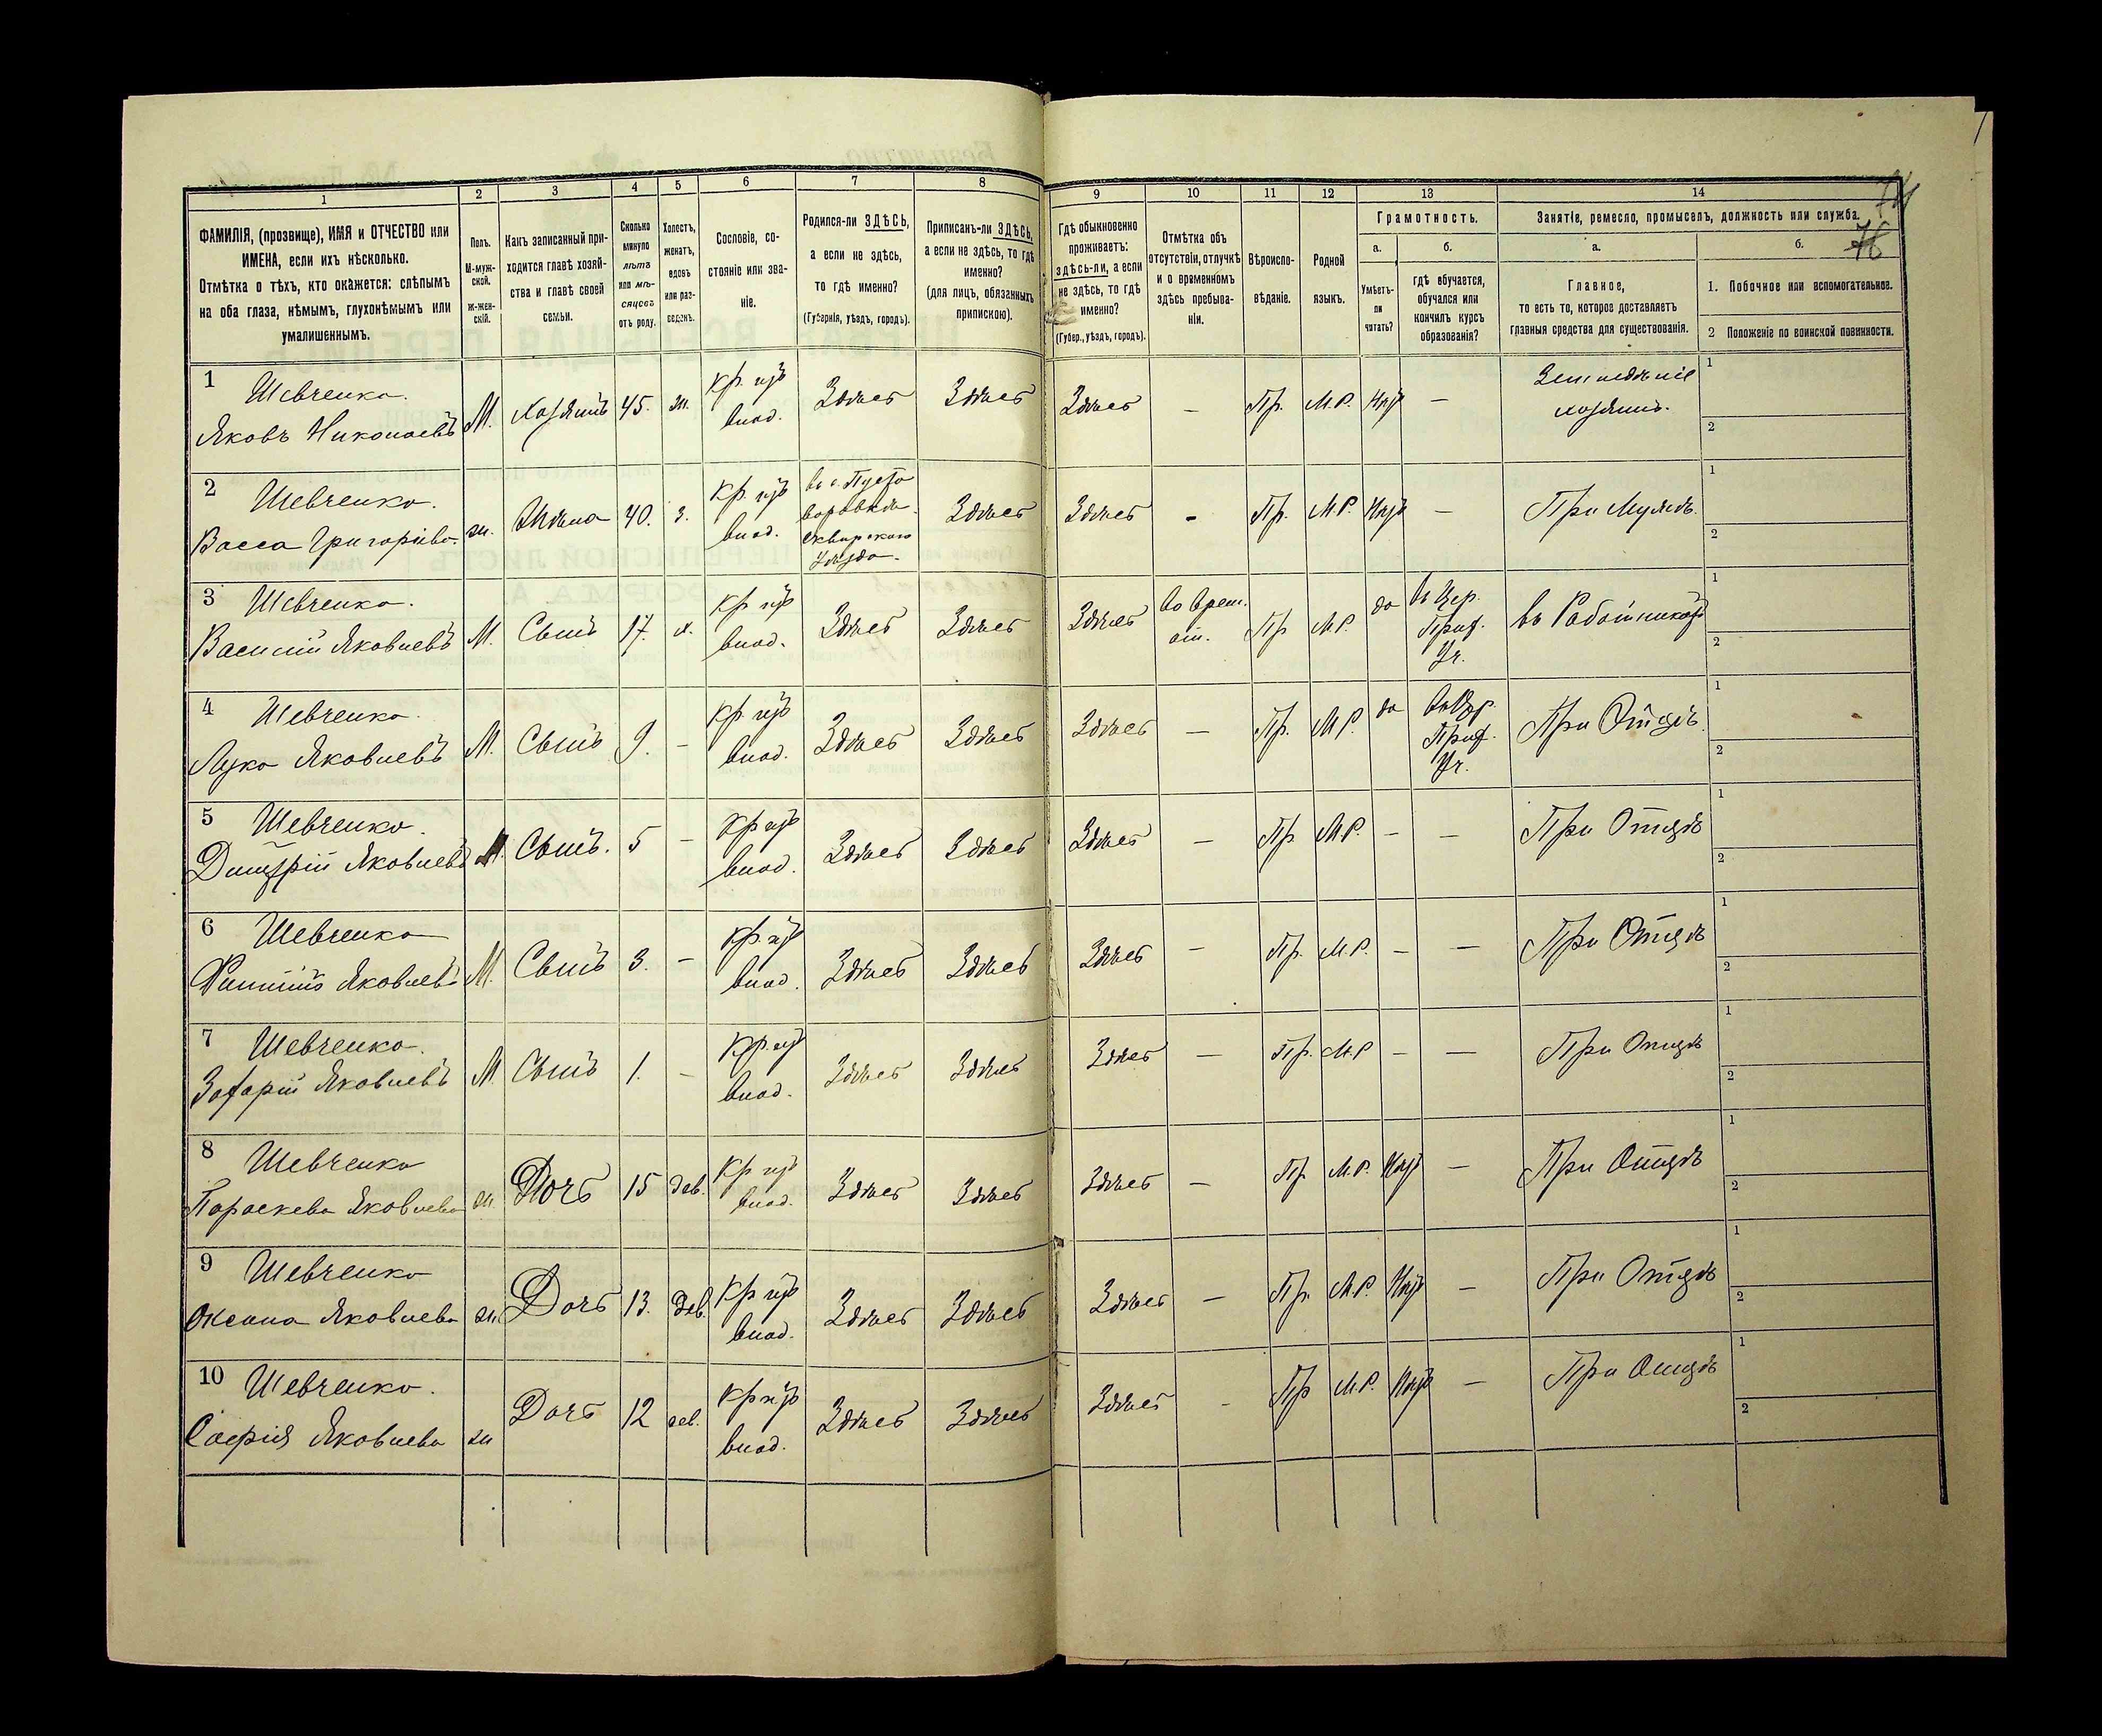 1 2 3 4 5 6 7 8 9 10 11 12 13 14
ФАМИЛІЯ, (прозвище), ИМЯ и ОТЧЕСТВО или
ИМЕНА, если ихъ нѣсколько.
Отмѣтка о тѣхъ, кто окажется: слѣпымъ
на оба глаза, нѣмымъ, глухонѣмымъ или
умалишеннымъ.
Полъ.
М-муж-
ской.
ж-жен-
скій.
Какъ записанный при-
ходится главѣ хозяй-
ства и главѣ своей
семьи.
Сколько
минуло
лѣтъ
или мѣ-
сяцевъ
отъ роду.
Холостъ,
женатъ,
вдовъ
или раз-
веденъ.
Сословіе, со-
стояніе или зва-
ніе.
Родился-ли ЗДѢСЬ,
а если не здѣсь,
то гдѣ именно?
(Губернія, уѣздъ, городъ).
Приписанъ-ли ЗДѢСЬ,
а если не здѣсь, то гдѣ
именно?
(для лицъ, обязанныхъ
припискою).
Гдѣ обыкновенно
проживаетъ:
здѣсь-ли, а если
не здѣсь, то гдѣ
именно?
(Губер., уѣздъ, городъ).
Отмѣтка объ
отсутствіи, отлучкѣ
и о временномъ
здѣсь пребыва-
ніи.
Вѣроиспо-
вѣданіе.
Родной
языкъ.
Грамотность.
а.
Умѣетъ-
ли
читать?
б.
гдѣ обучается,
обучался или
кончилъ курсъ
образованія?
Занятіе, ремесло, промыселъ, должность или служба.
а.
Главное,
то есть то, которое доставляетъ
главныя средства для существованія.
б.
1. Побочное или вспомогательное.
2 Положеніе по воинской повинности.
1 Шевченко.
Яковъ Николаевъ М. Хозяинъ 45. ж. Кр. изъ влад. Здѣсь Здѣсь Здѣсь — Пр. М.Р. Нѣтъ — Земледѣліе хозяинъ. 1 2
2 Шевченко.
Васса Григоріева. ж. Жена 40. з. Кр. изъ влад. Въ с. Пустоваровкѣ. Сквирскаго Уѣзда. Здѣсь Здѣсь - Пр. М.Р. Нѣтъ — При Мужѣ. 1 2
3 Шевченко.
Василій Яковлевъ М. Сынъ 17. х. Кр. изъ влад. Здѣсь Здѣсь Здѣсь во врем. от. Пр М.Р. да въ Цер. Прих. Уч. въ Работникахъ 1 2
4 Шевченко.
Лука Яковлевъ М. Сынъ 9. — Кр. изъ влад. Здѣсь Здѣсь Здѣсь — Пр. М.Р. да въ Цер. Прих. Уч. При Отцѣ. 1 2
5 Шевченко.
Димитрій Яковлевъ М. Сынъ. 5 — Кр изъ влад. Здѣсь Здѣсь Здѣсь — Пр М.Р. — — При Отцѣ 1 2
6 Шевченко
Филиппъ Яковлевъ М. Сынъ 3. — Кр. изъ влад. Здѣсь Здѣсь Здѣсь — Пр. М.Р. — — При Отцѣ 1 2
7 Шевченко.
Захарій Яковлевъ М. Сынъ 1. — Кр. изъ влад. Здѣсь Здѣсь Здѣсь — Пр. М.Р — — При Отцѣ 1 2
8 Шевченко
Параскева Яковлева ж. Дочь 15 дев. Кр изъ влад. Здѣсь Здѣсь Здѣсь — Пр М.Р. Нѣтъ — При Отцѣ 1 2
9 Шевченко
Оксана Яковлева ж. Дочь 13. Дев. Кр изъ влад. Здѣсь Здѣсь Здѣсь — Пр. М.Р. Нѣтъ — При Отцѣ 1 2
10 Шевченко.
Софія Яковлева ж Дочь 12 дев. Кр изъ влад. Здѣсь Здѣсь Здѣсь - Пр М.Р. Нѣтъ — При Отцѣ 1 2